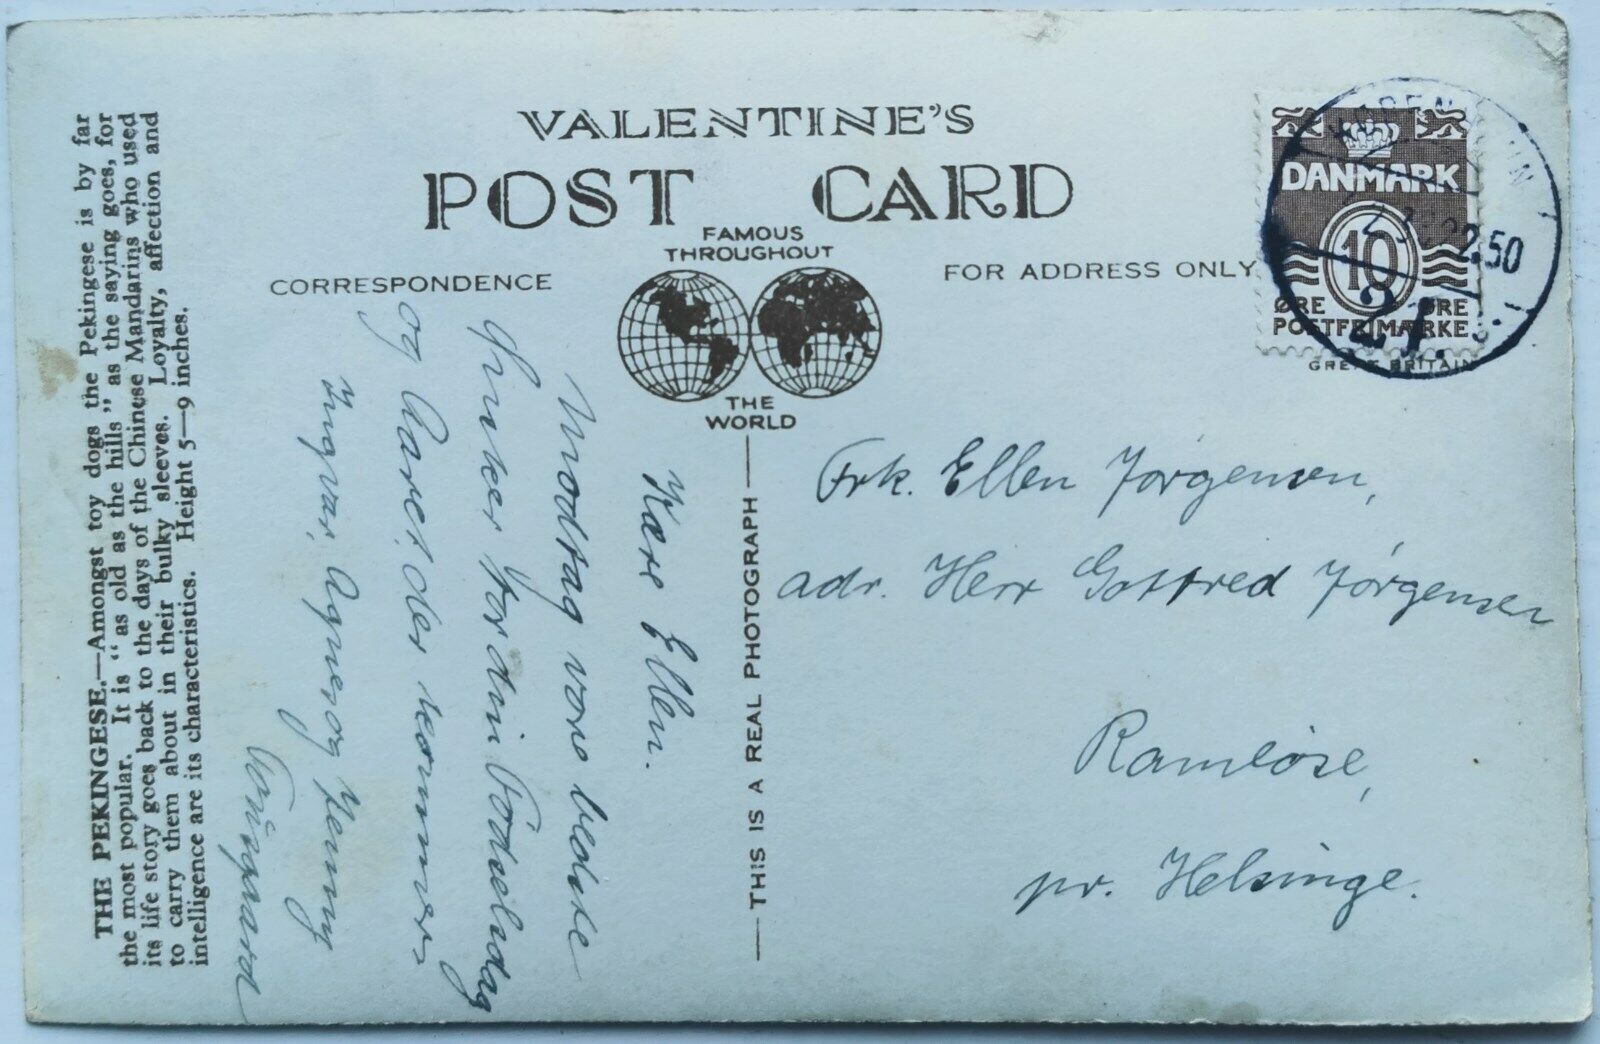 THE PEKINGESE.—Amongst toy dogs the Pekingese is by far
the most popular. It is “ as old as the hills ” as the saying goes, for
its life story goes back to the days of the Chinese Mandarins who used
to carry them about in their bulky sleeves. Loyalty, affection and
intelligence are its characteristics. Height 5—9 inches.
VALENTINE'S
POST CARD
FAMOUS
THROUGHOUT
THE
WORLD
CORRESPONDENCE
FOR ADDRESS ONLY
THIS IS A REAL PHOTOGRAPH
GREAT BRITAIN
DANMARK
10
ØRE ØRE
POSTFRIMÆRKE
2.50
21.
Kære Ellen.
Modtag vore bedste
Ønsker for din Födselsdag
og Aaret der kommer
Ingvar, Agnes og Henny
Frk. Ellen Jørgensen,
adr. Herr Gotfred Jørgensen
Ramløse,
pr. Helsinge.